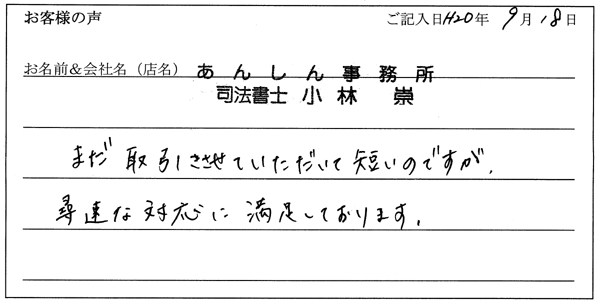 お客様の声 ご記入日H20年 9月 18日
お名前&会社名（店名） あんしん事務所
司法書士 小林 崇
まだ取引させていただいて短いのですが、
尋速な対応に満足しております。